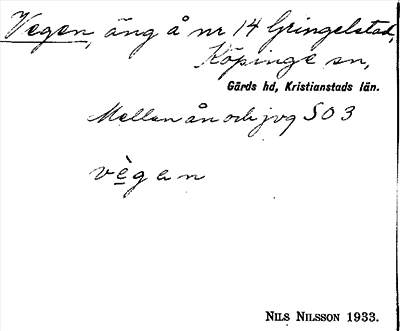 Vegen, äng å nr 14 Gringelstad,
Köpinge sn,
Gärds hd, Kristianstads län.
Mellan ån och jvg SO3
vègen
NILS NILSSON 1933.